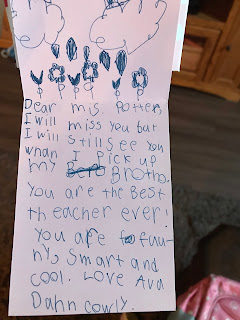 Dear mis. Potter,
I will miss you but
I will still see you
whan I pick up
my Brother.
you are the Best
theacher ever!
you are fau-
ny, smart and
cool. Love Ava
Dahn cowly.